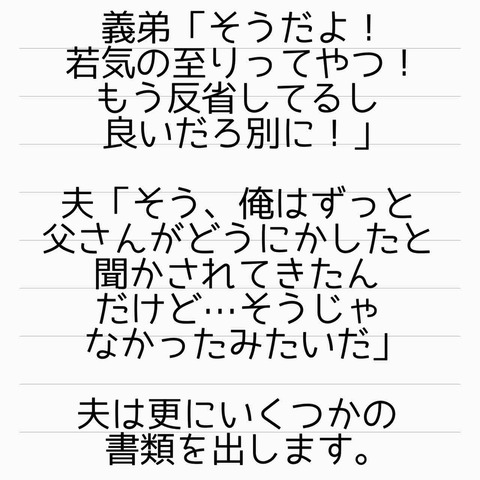 義弟「そうだよ！
若気の至りってやつ！
もう反省してるし
良いだろ別に！」
夫「そう、俺はずっと
父さんがどうにかしたと
聞かされてきたん
だけど…そうじゃ
なかったみたいだ」
夫は更にいくつかの
書類を出します。